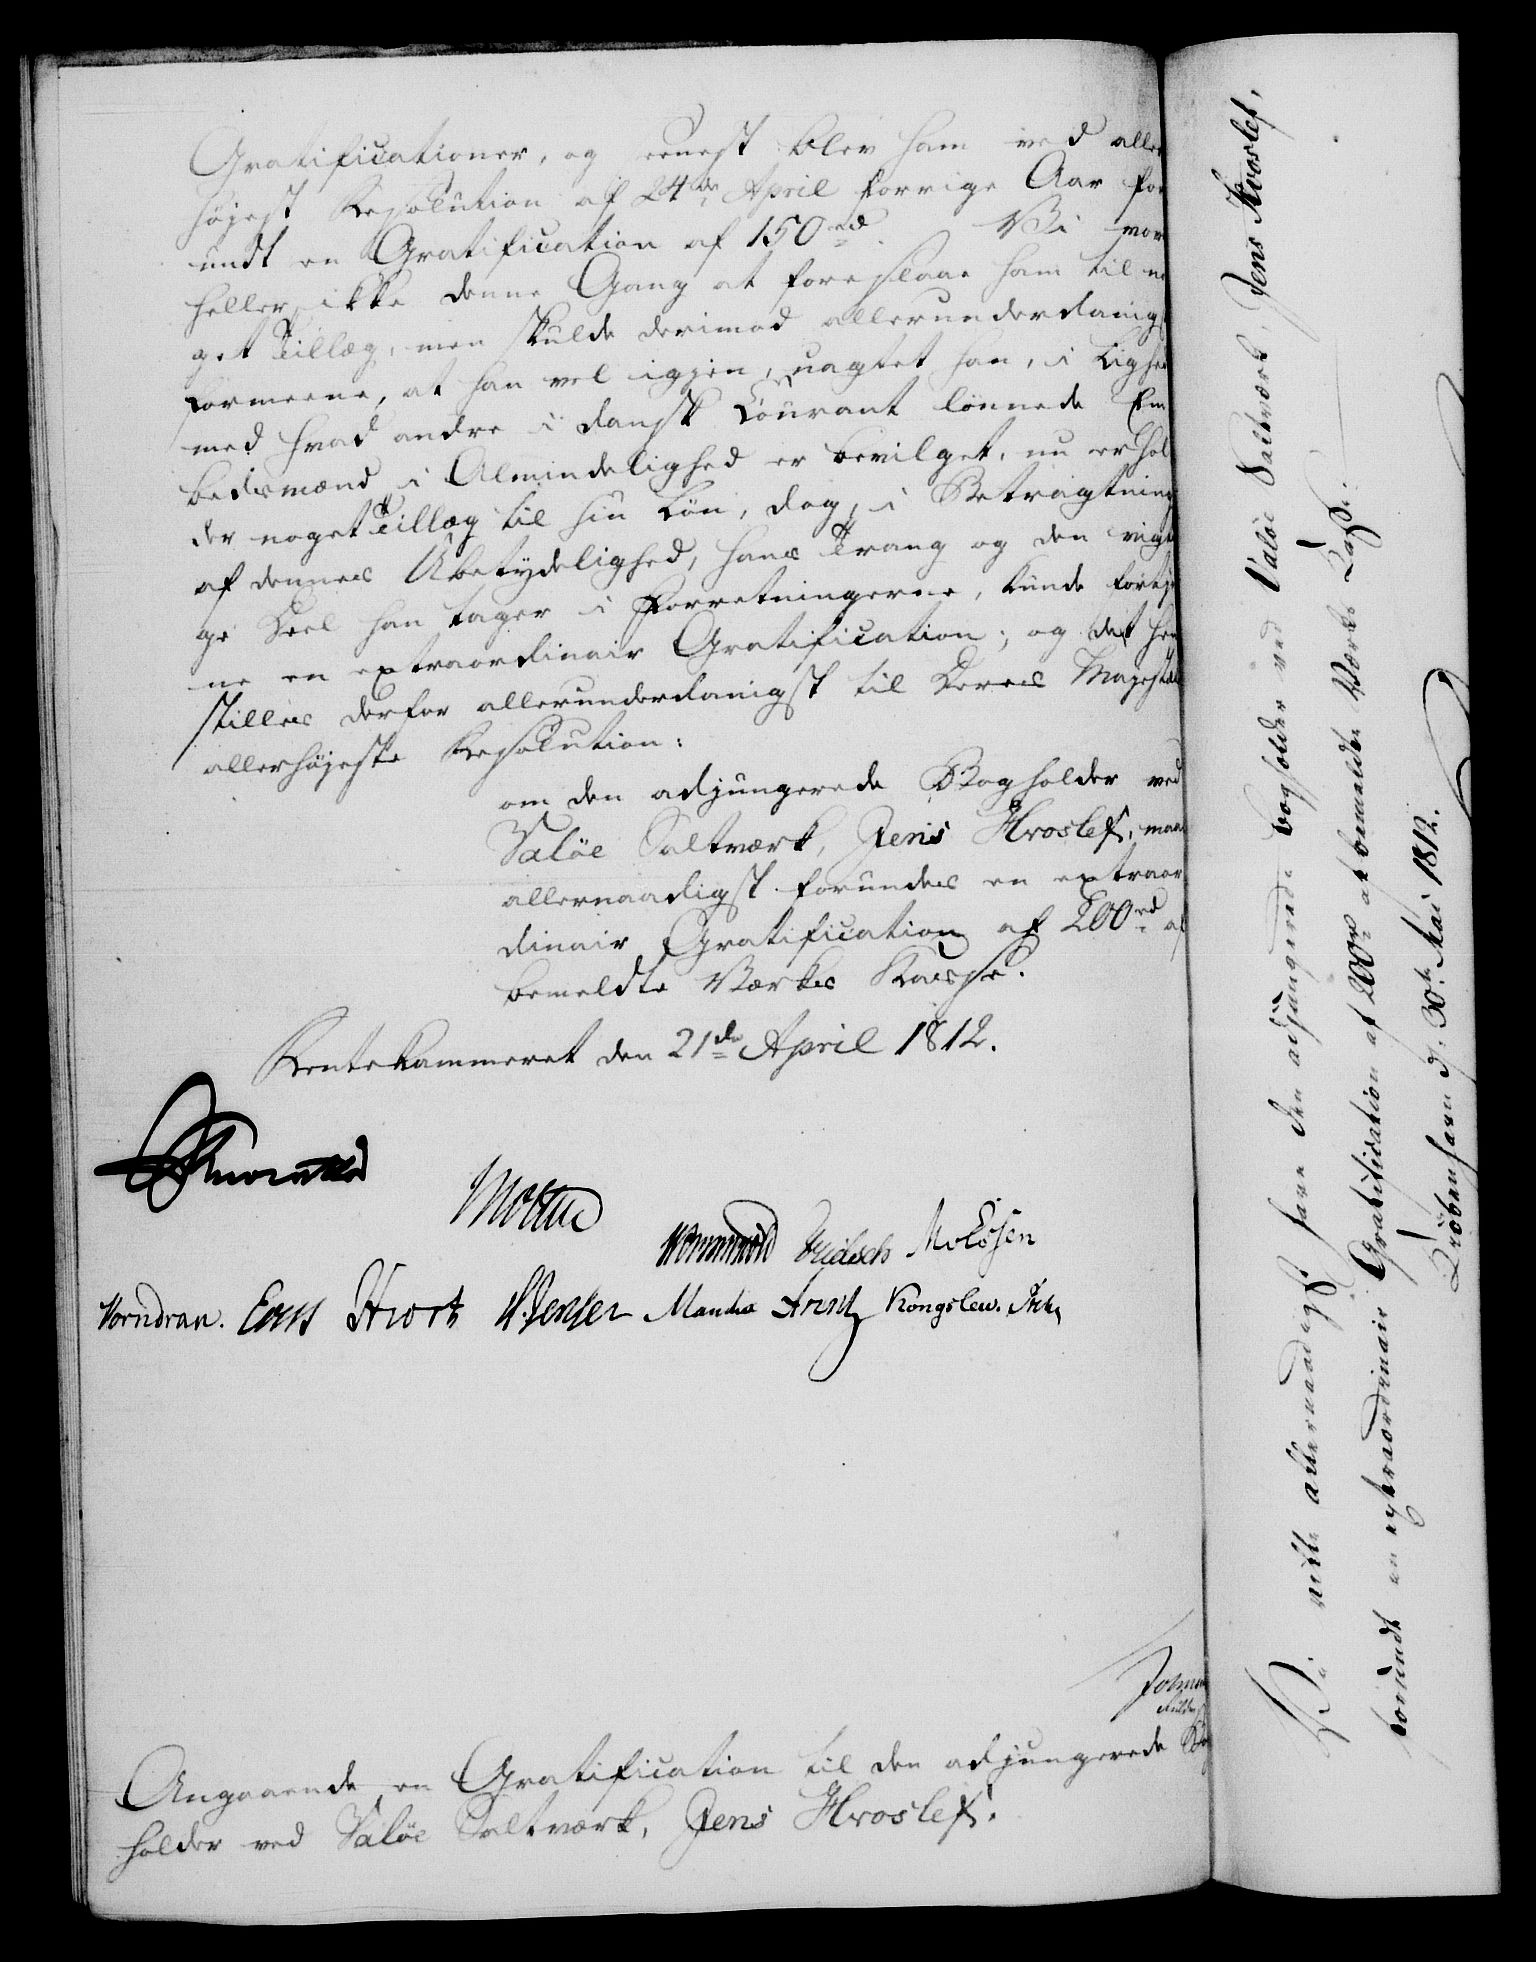 Gratificationer, og senest blev ham ved aller
højest Resolution af 24de April forrige Aar for
undt en Gratification af 150 rd. Vi vove
heller ikke denne Gang at foreslaae ham til no
get Tillæg, men skulde derimod allerunderdanigst
formeene, at han vel igjen, uagtet han, i Lighed
med hvad andre i dansk Courant lönnede Em
bedsmænd i Almindelighed er bevilget, nu erhol
der noget Tillæg til sin Lön, dog, i Betragtning
af dennes Ubetydelighed, hans Trang og den vigti
ge Deel han tager i Forretningerne, kunde fortje
ne en extraordinair Gratification; og det hen
stilles derfor allerunderdanigst til Deres Majestæts
allerhøjeste Resolution:
om den adjungerede Bogholder ved
Valöe Saltværk, Jens Hroslef, maae
allernaadigst forundes en extraor
dinair Gratification af 200 rd af
bemeldte Værkes Kasse.
Rentekammeret den 21de April 1812.
Mølsen
Vorndran. Hiort Manthe Arntz Kongslew.
Angaaende en Gratification til den adjungerede Bog
holder ved Valöe Saltværk, Jens Hroslef.
Vi ville allernaadigst have den adjungerede Bogholder ved Valöe Saltværk, Jens Hroslef,
forundt en extraordinair Gratification af 200 rd af bemeldte Værks Casse.
Kiöbenhavn d. 30te Mai 1812.